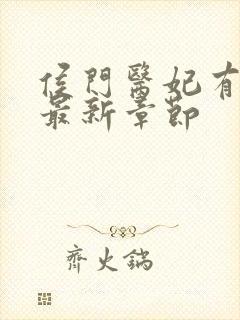 侯門醫妃有
最新章節
齊火鍋